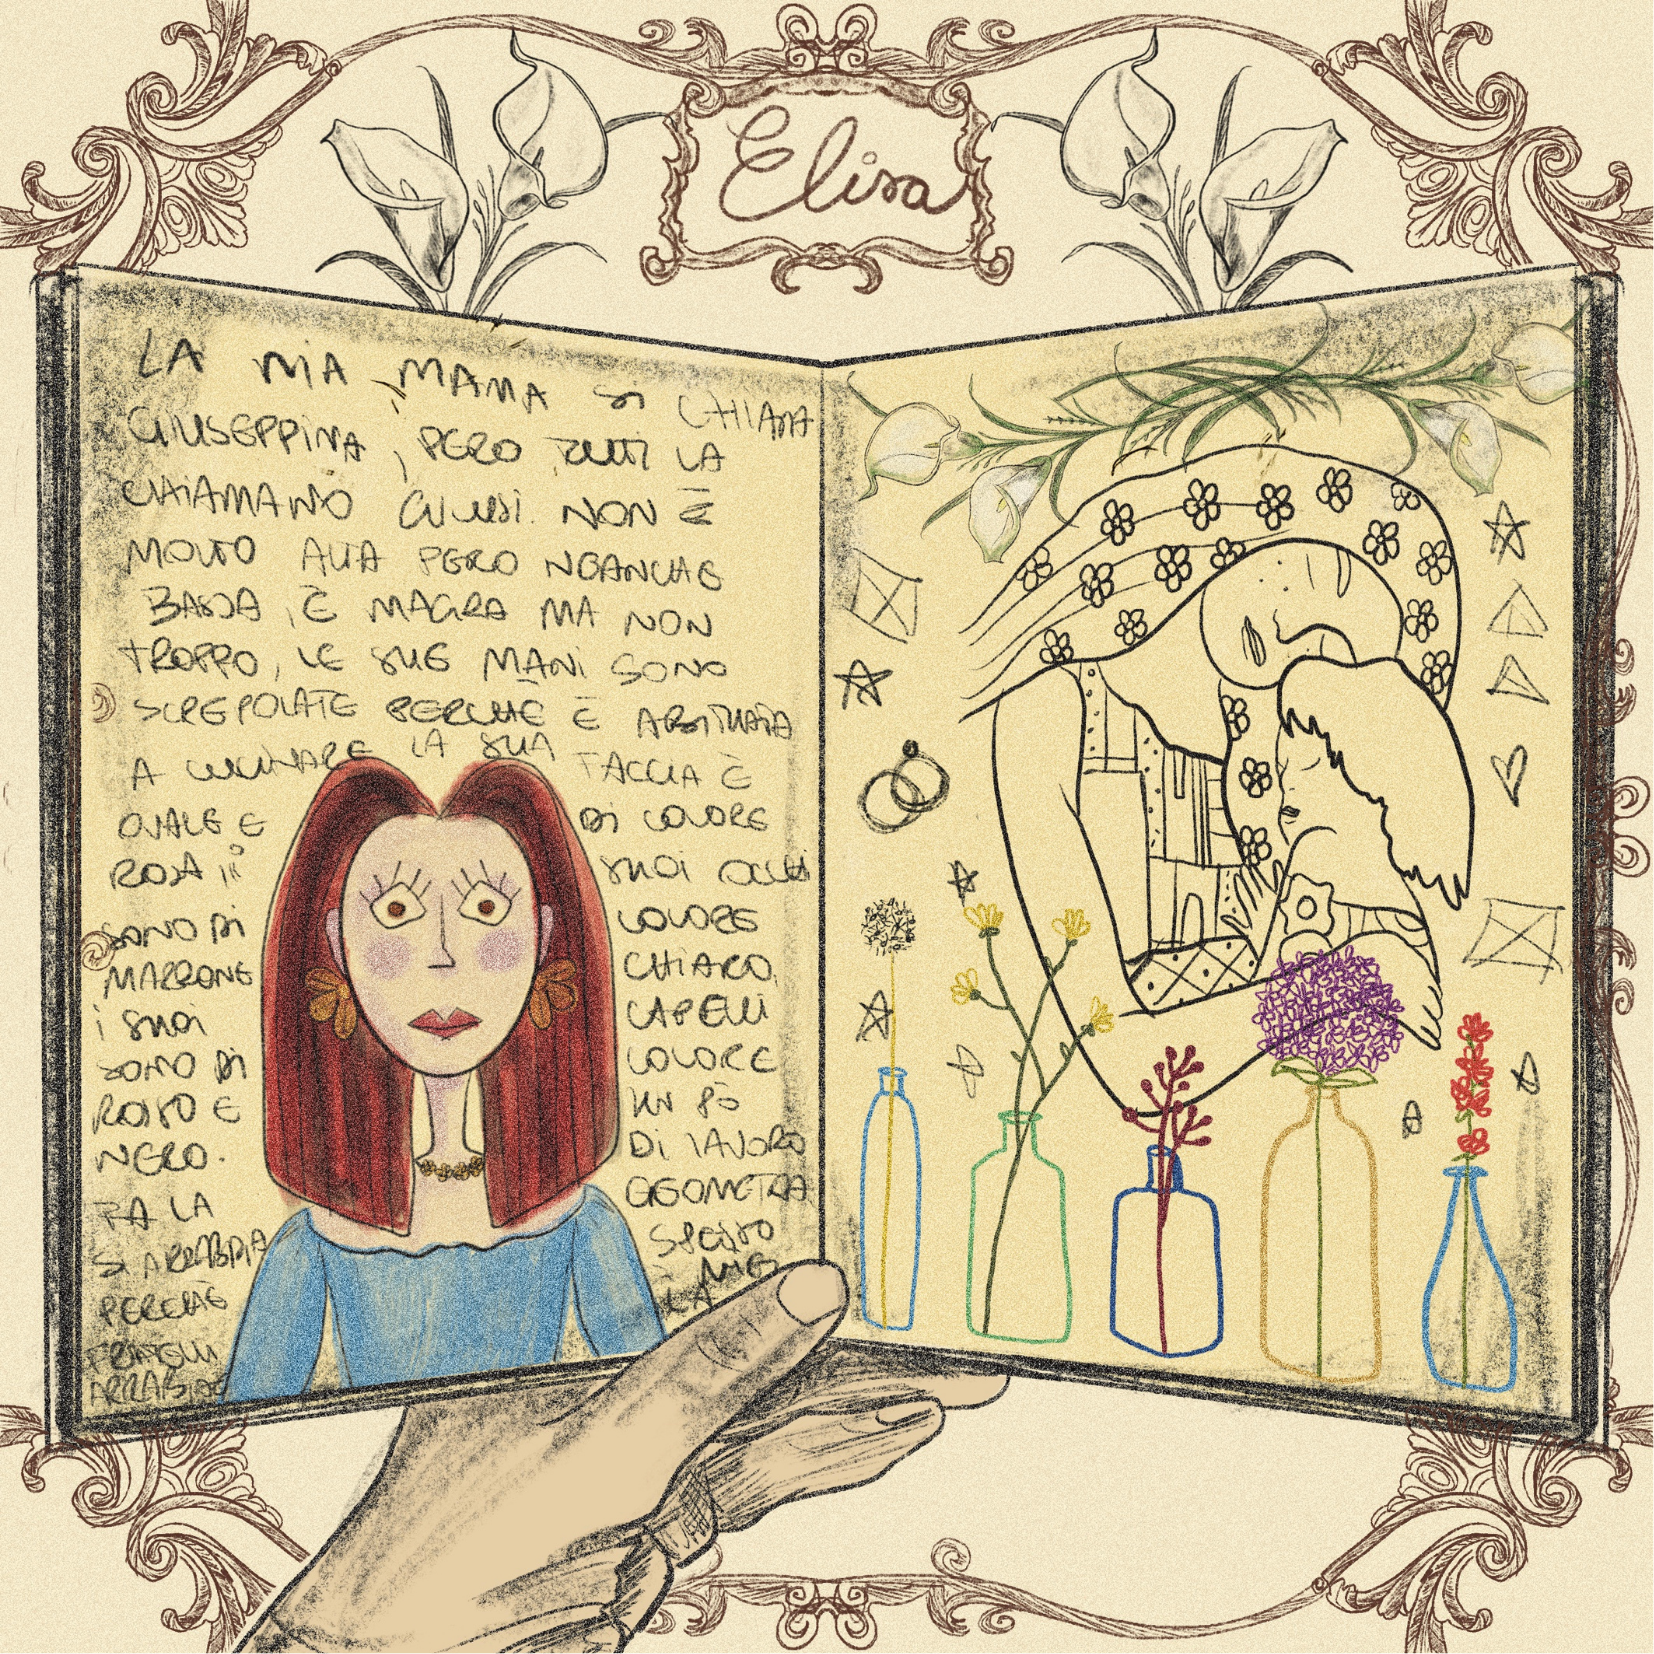 Elisa
LA MIA MAMA SI CHIAMA
GIUSEPPINA, PERO TUTTI LA
CHIAMANO GIUSSI. NON È
MOLTO ALTA PERO NEANCHE
BASSA, È MAGRA MA NON
TROPPO, LE SUE MANI SONO
SCREPOLATE PERCHÈ È ABITUATA
A CUCINARE LA SUA FACCIA È
OVALE E DI COLORE
ROSA i SUOI OCCHI
SONO DI COLORE
MARRONE CHIARO,
i SUOI CAPELLI
SONO DI COLORE
ROSSO E UN PÒ
NERO. DI LAVORO
FA LA GEOMETRA
SI ARRABBIA SPESSO
PERCHÈ I MIEI
FRATELLI LA